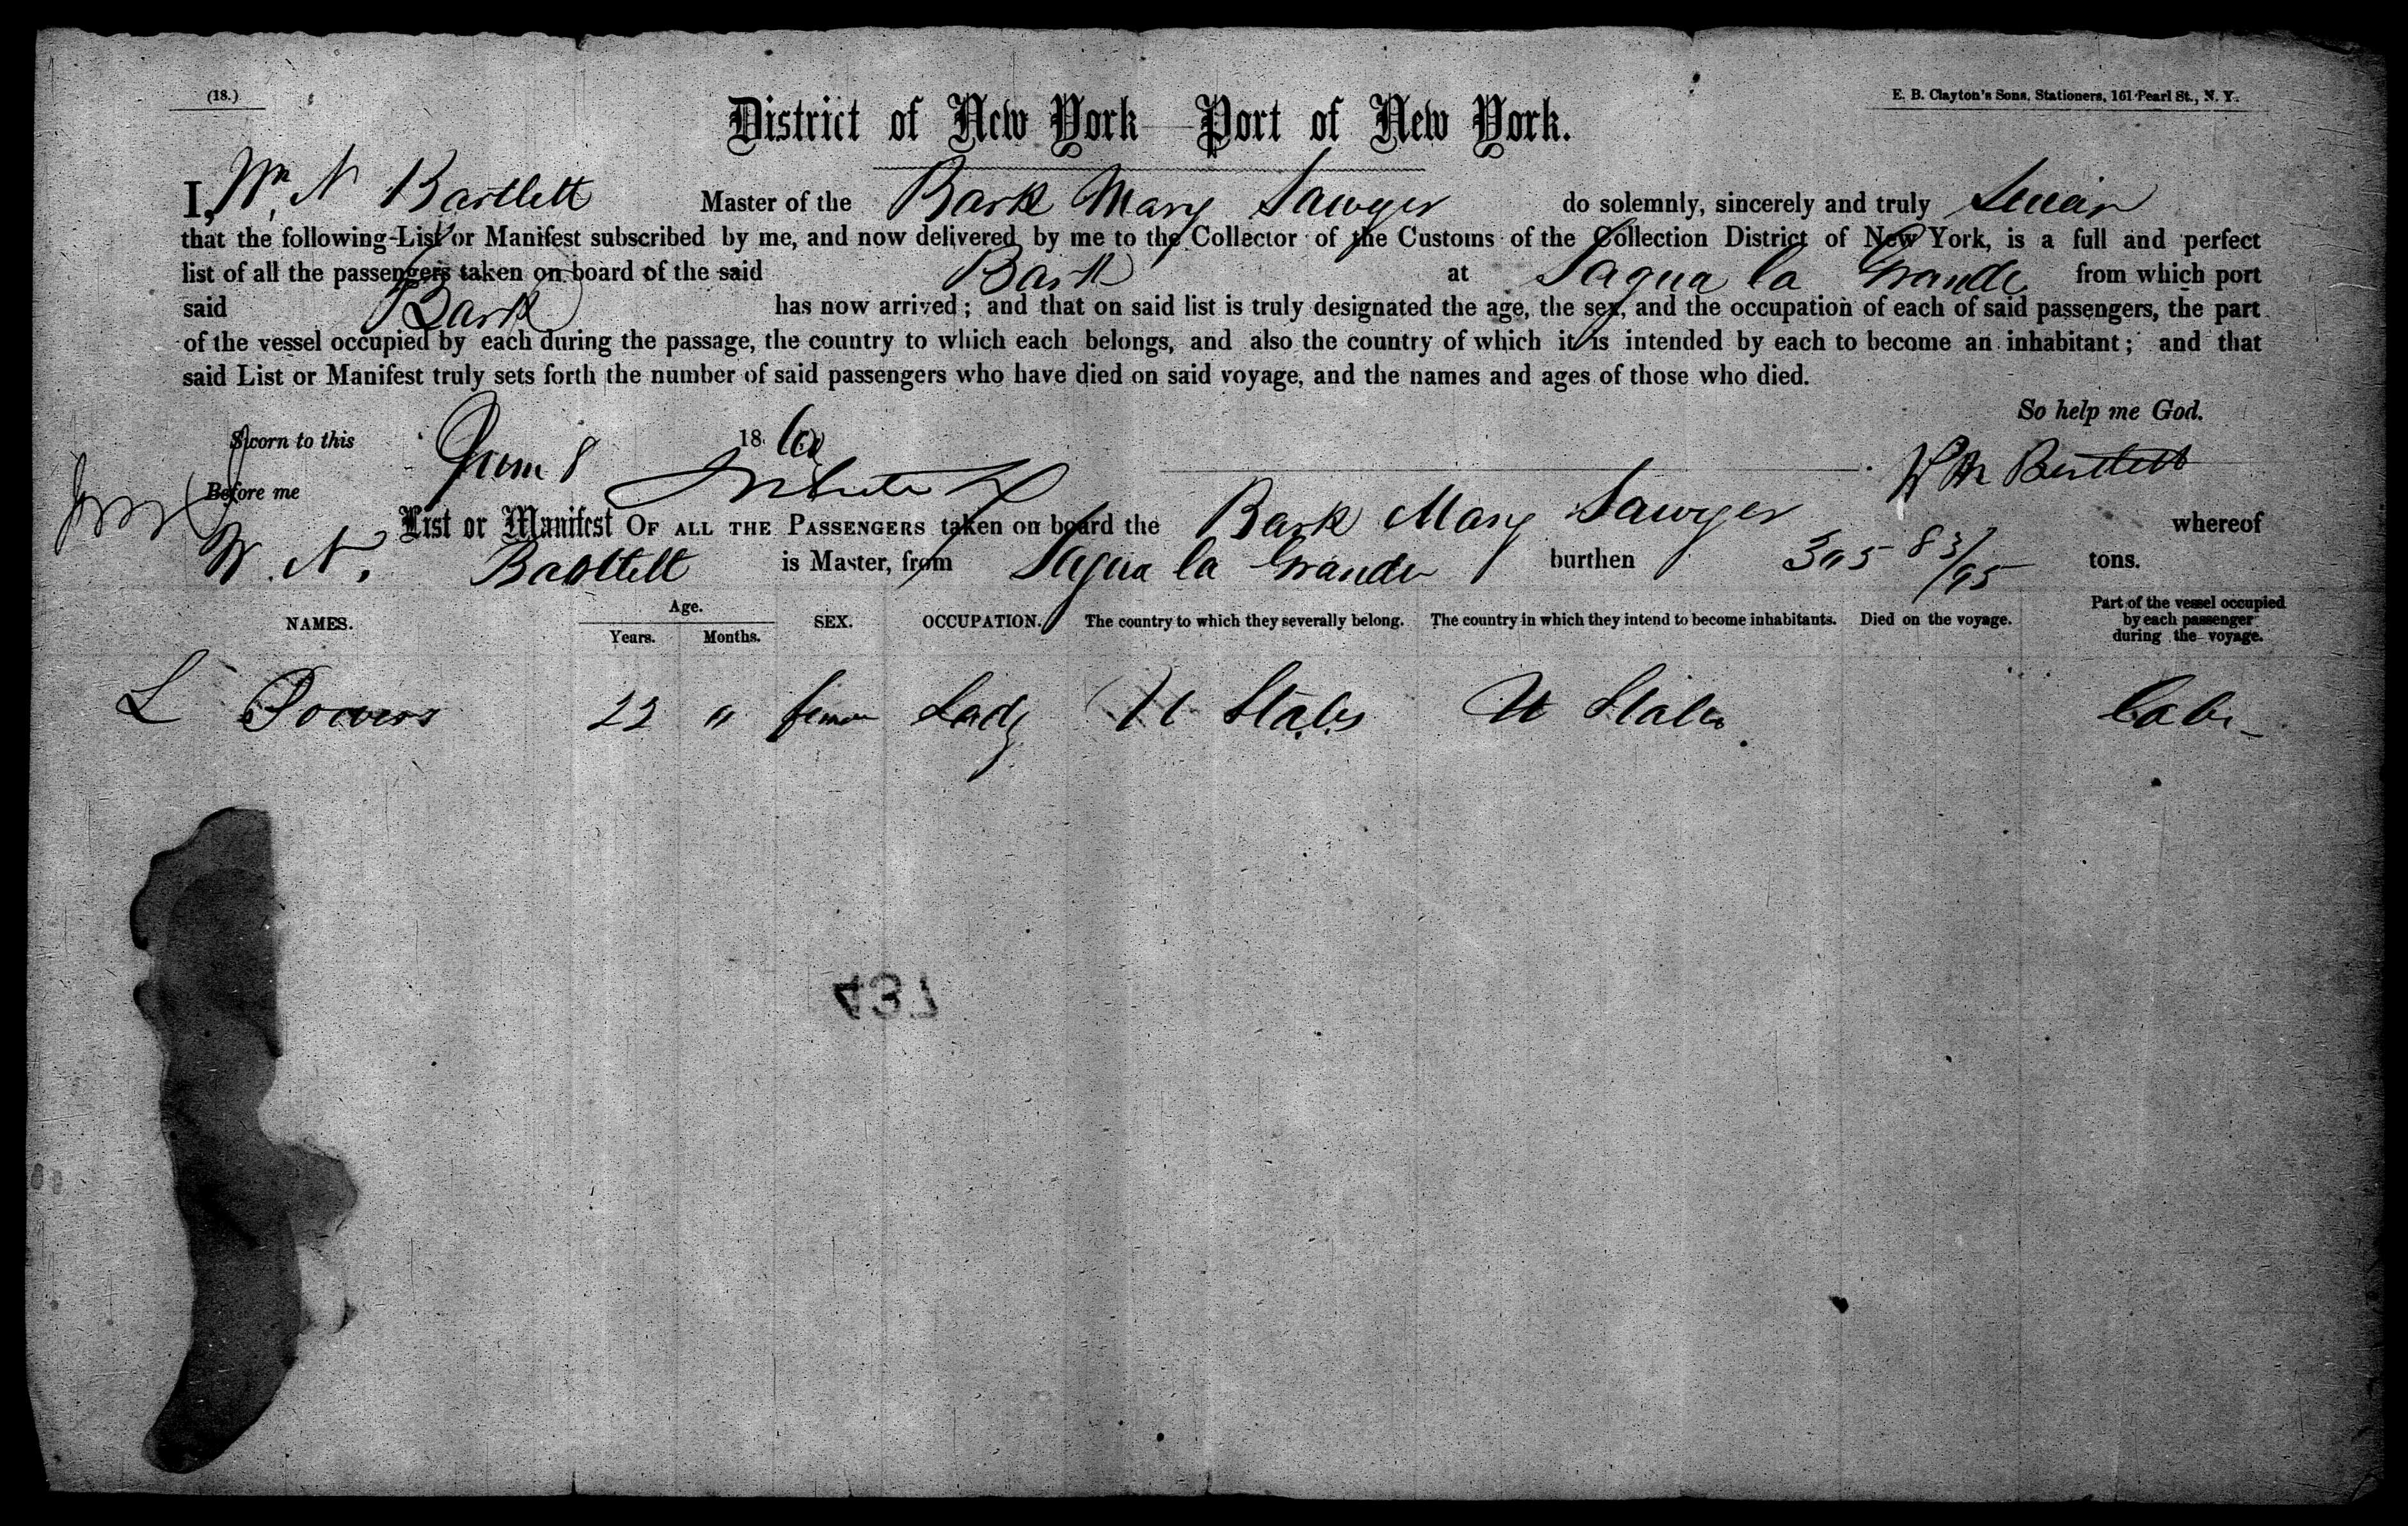 (18.)
E. B. Clayton's Sons, Stationers, 161 Pearl St., N. Y.
District of New York Port of New York.
I, Wm. N Bartlett Master of the Bark Mary Sawyer do solemnly, sincerely and truly Swear
that the following List or Manifest subscribed by me, and now delivered by me to the Collector of the Customs of the Collection District of New York, is a full and perfect
list of all the passengers taken on board of the said Bark at Sagua la Grande from which port
said Bark has now arrived; and that on said list is truly designated the age, the sex, and the occupation of each of said passengers, the part
of the vessel occupied by each during the passage, the country to which each belongs, and also the country of which it is intended by each to become an inhabitant; and that
said List or Manifest truly sets forth the number of said passengers who have died on said voyage, and the names and ages of those who died.
So help me God.
Sworn to this June 8 1860
Before me
Wm Bartlett
List or Manifest OF ALL THE PASSENGERS taken on board the Bark Mary Sawyer whereof
W. N. Bartlett is Master, from Sagua la Grande burthen 305 83/95 tons.
NAMES. Age. Years. Months. SEX. OCCUPATION. The country to which they severally belong. The country in which they intend to become inhabitants. Died on the voyage. Part of the vessel occupied by each passenger during the voyage.
L Powers 22 " Lady U States U States
437